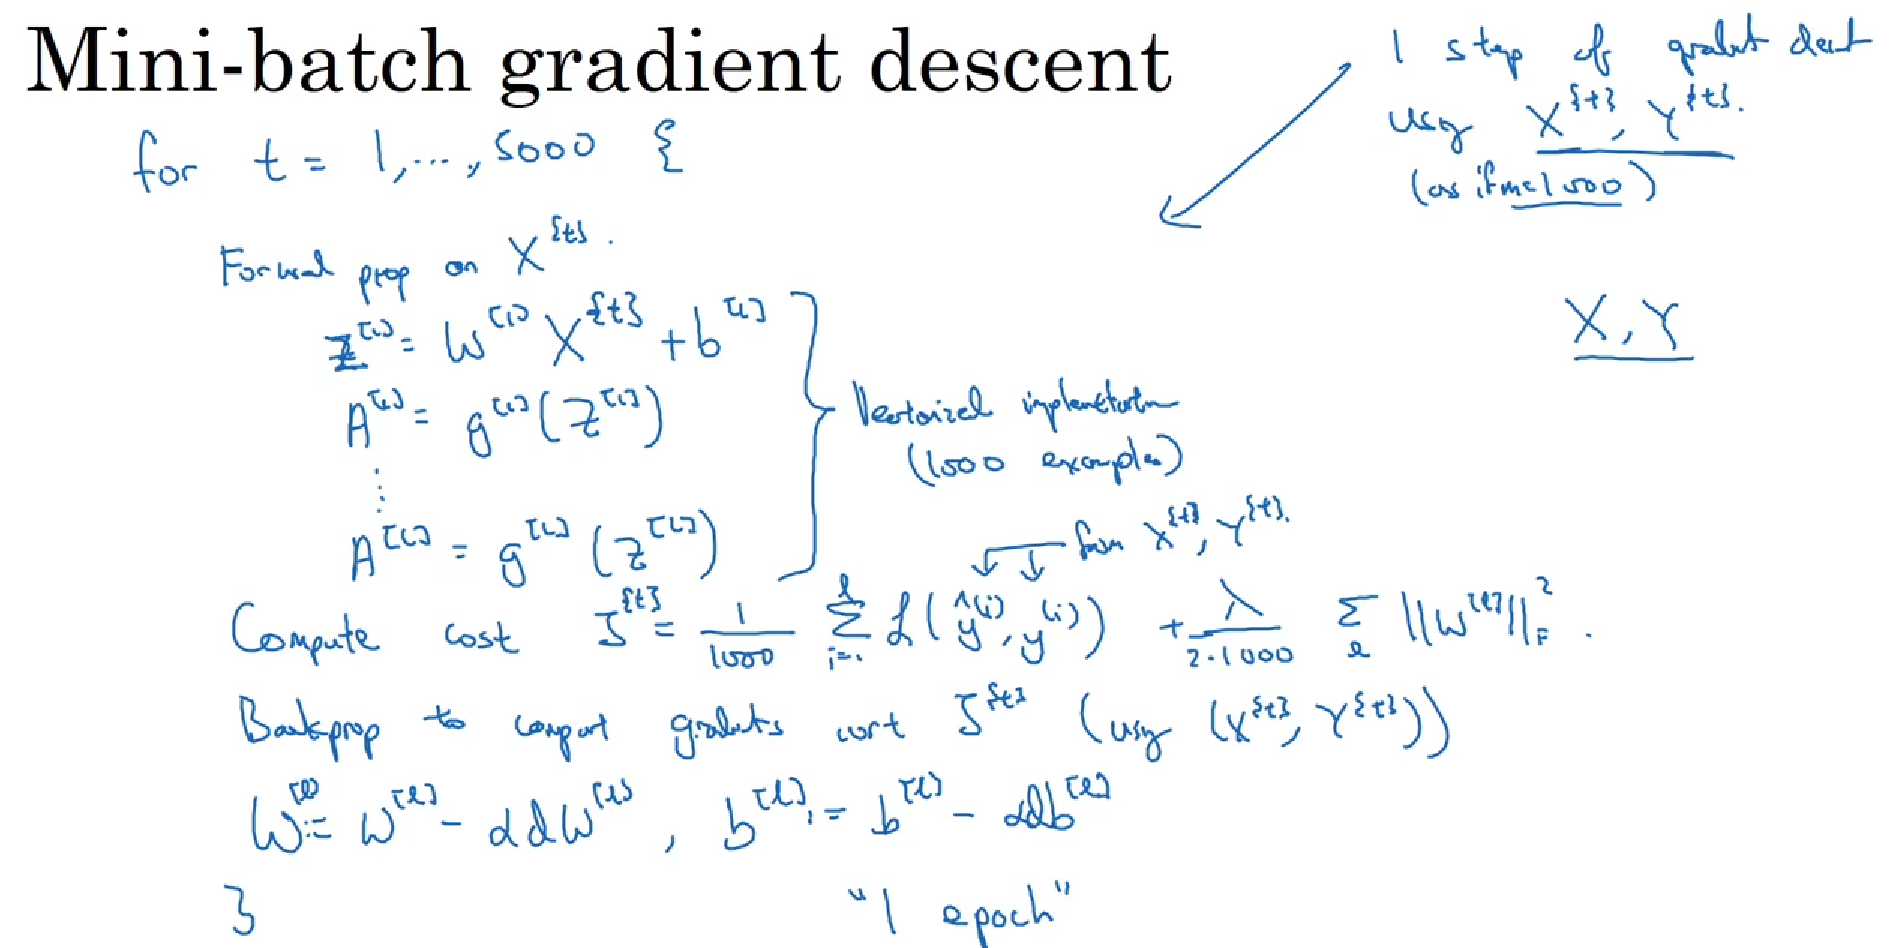 Mini-batch gradient descent
1 step of gradient descent
using X^{t}, Y^{t}.
(as if m=1000)
for t = 1,..., 5000 {
Forward prop on X^{t}.
Z^[1] = W^[1] X^{t} + b^[1]
A^[1] = g^[1](Z^[1])
⋮
A^[L] = g^[L](Z^[L])
Vectorized implementation
(1000 examples)
X, Y
from X^{t}, Y^{t}.
Compute cost J^{t} = 1/1000 Σ_{i=1}^{l} L(ŷ^(i), y^(i)) + λ/(2·1000) Σ_l ||W^[l]||_F^2 .
Backprop to compute gradients wrt J^{t} (using (X^{t}, Y^{t}))
W^[l] := W^[l] - αdW^[l] , b^[l] := b^[l] - αdb^[l]
}
"1 epoch"